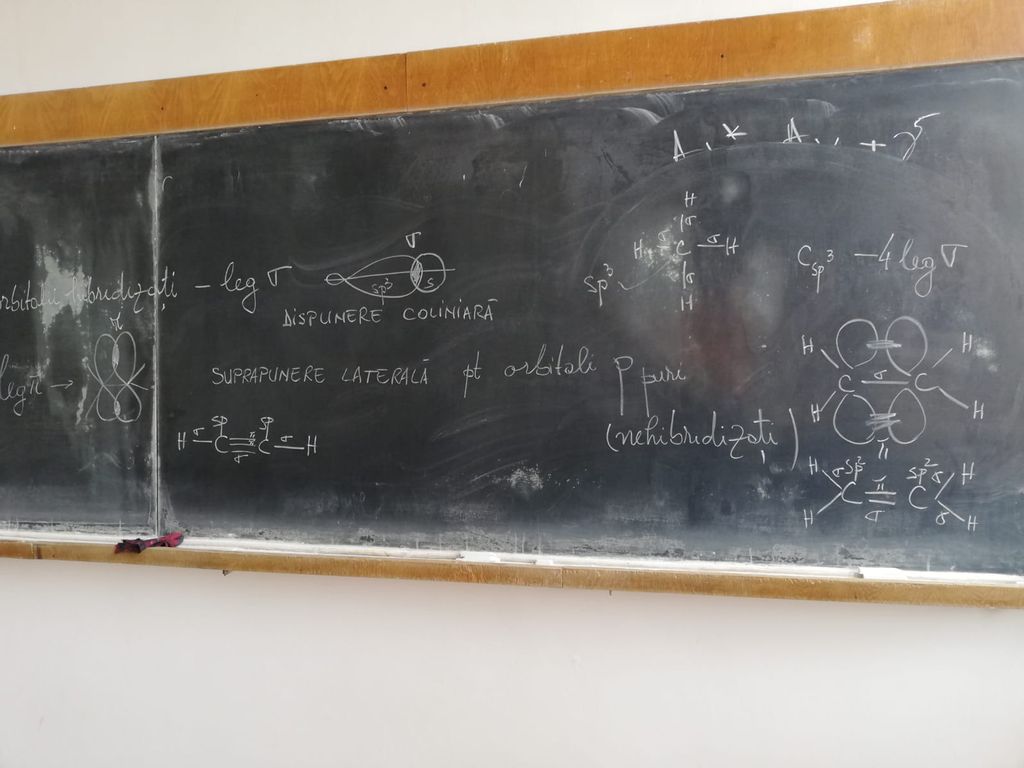 orbitali hibridizați – leg σ
σ
sp³ s
DISPUNERE COLINIARĂ
leg π →
π
SUPRAPUNERE LATERALĂ pt orbitali p puri
(nehibridizați)
sp sp
H σ C π C σ H
σ
H
σ
H σ C σ H
sp³
σ
H
Csp³ – 4 leg σ
H H
C σ C
H H
π
H sp² sp² H
σ π σ
C C
σ σ
H H